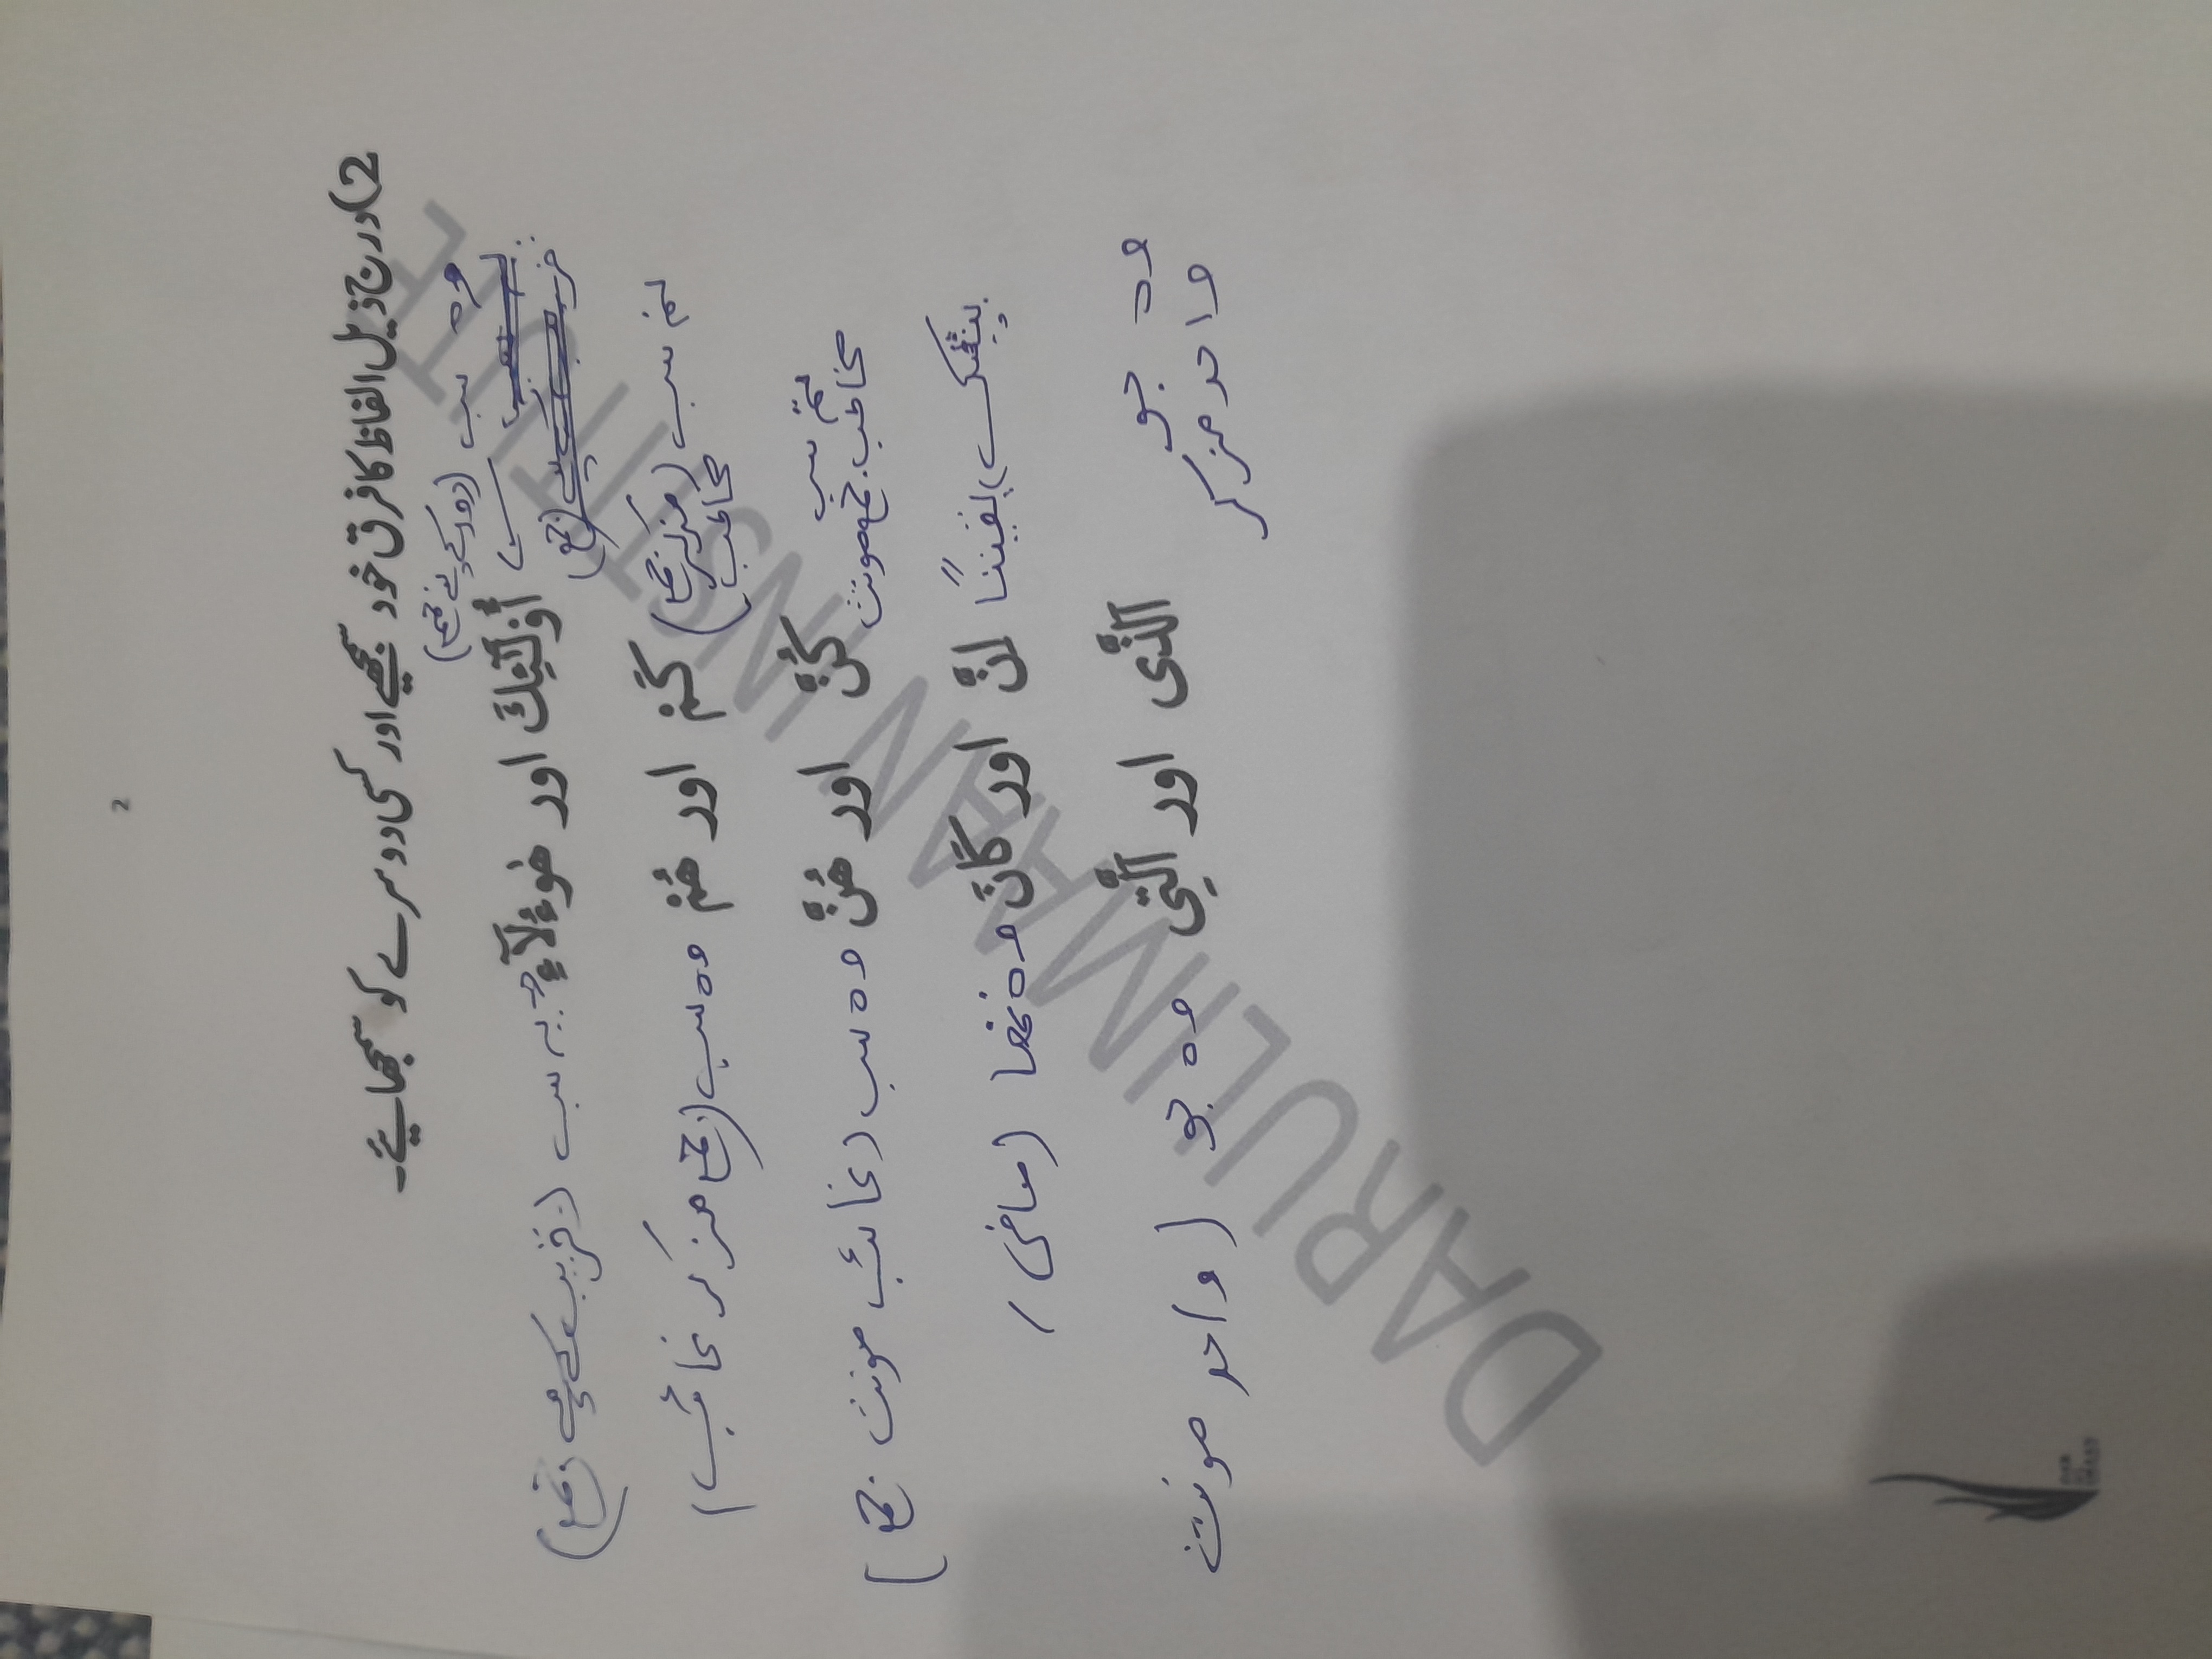 2
2)درج ذیل الفاظ کا فرق خود سمجھیے اور کسی دوسرے کو سمجھائیے۔
وہ سب (دور کے لئے جمع)
أُولَٰئِكَ اور هَٰؤُلَاءِ یہ سب (قریب کے لیے جمع)
(جمع)
تم سب (مذکر جمع مخاطب) كُمْ اور هُمْ وہ سب (جمع مذکر غائب)
تم سب
مخاطب جمع مونث كُنَّ اور هُنَّ وہ سب (غائب مونث جمع)
بیشک، یقیناً اِنَّ اور كَانَ وہ تھا (ماضی)
وہ جو الَّذِي اور الَّتِي وہ جو (واحد مونث
واحد مذکر
DARULIMAAN INSTITUTE